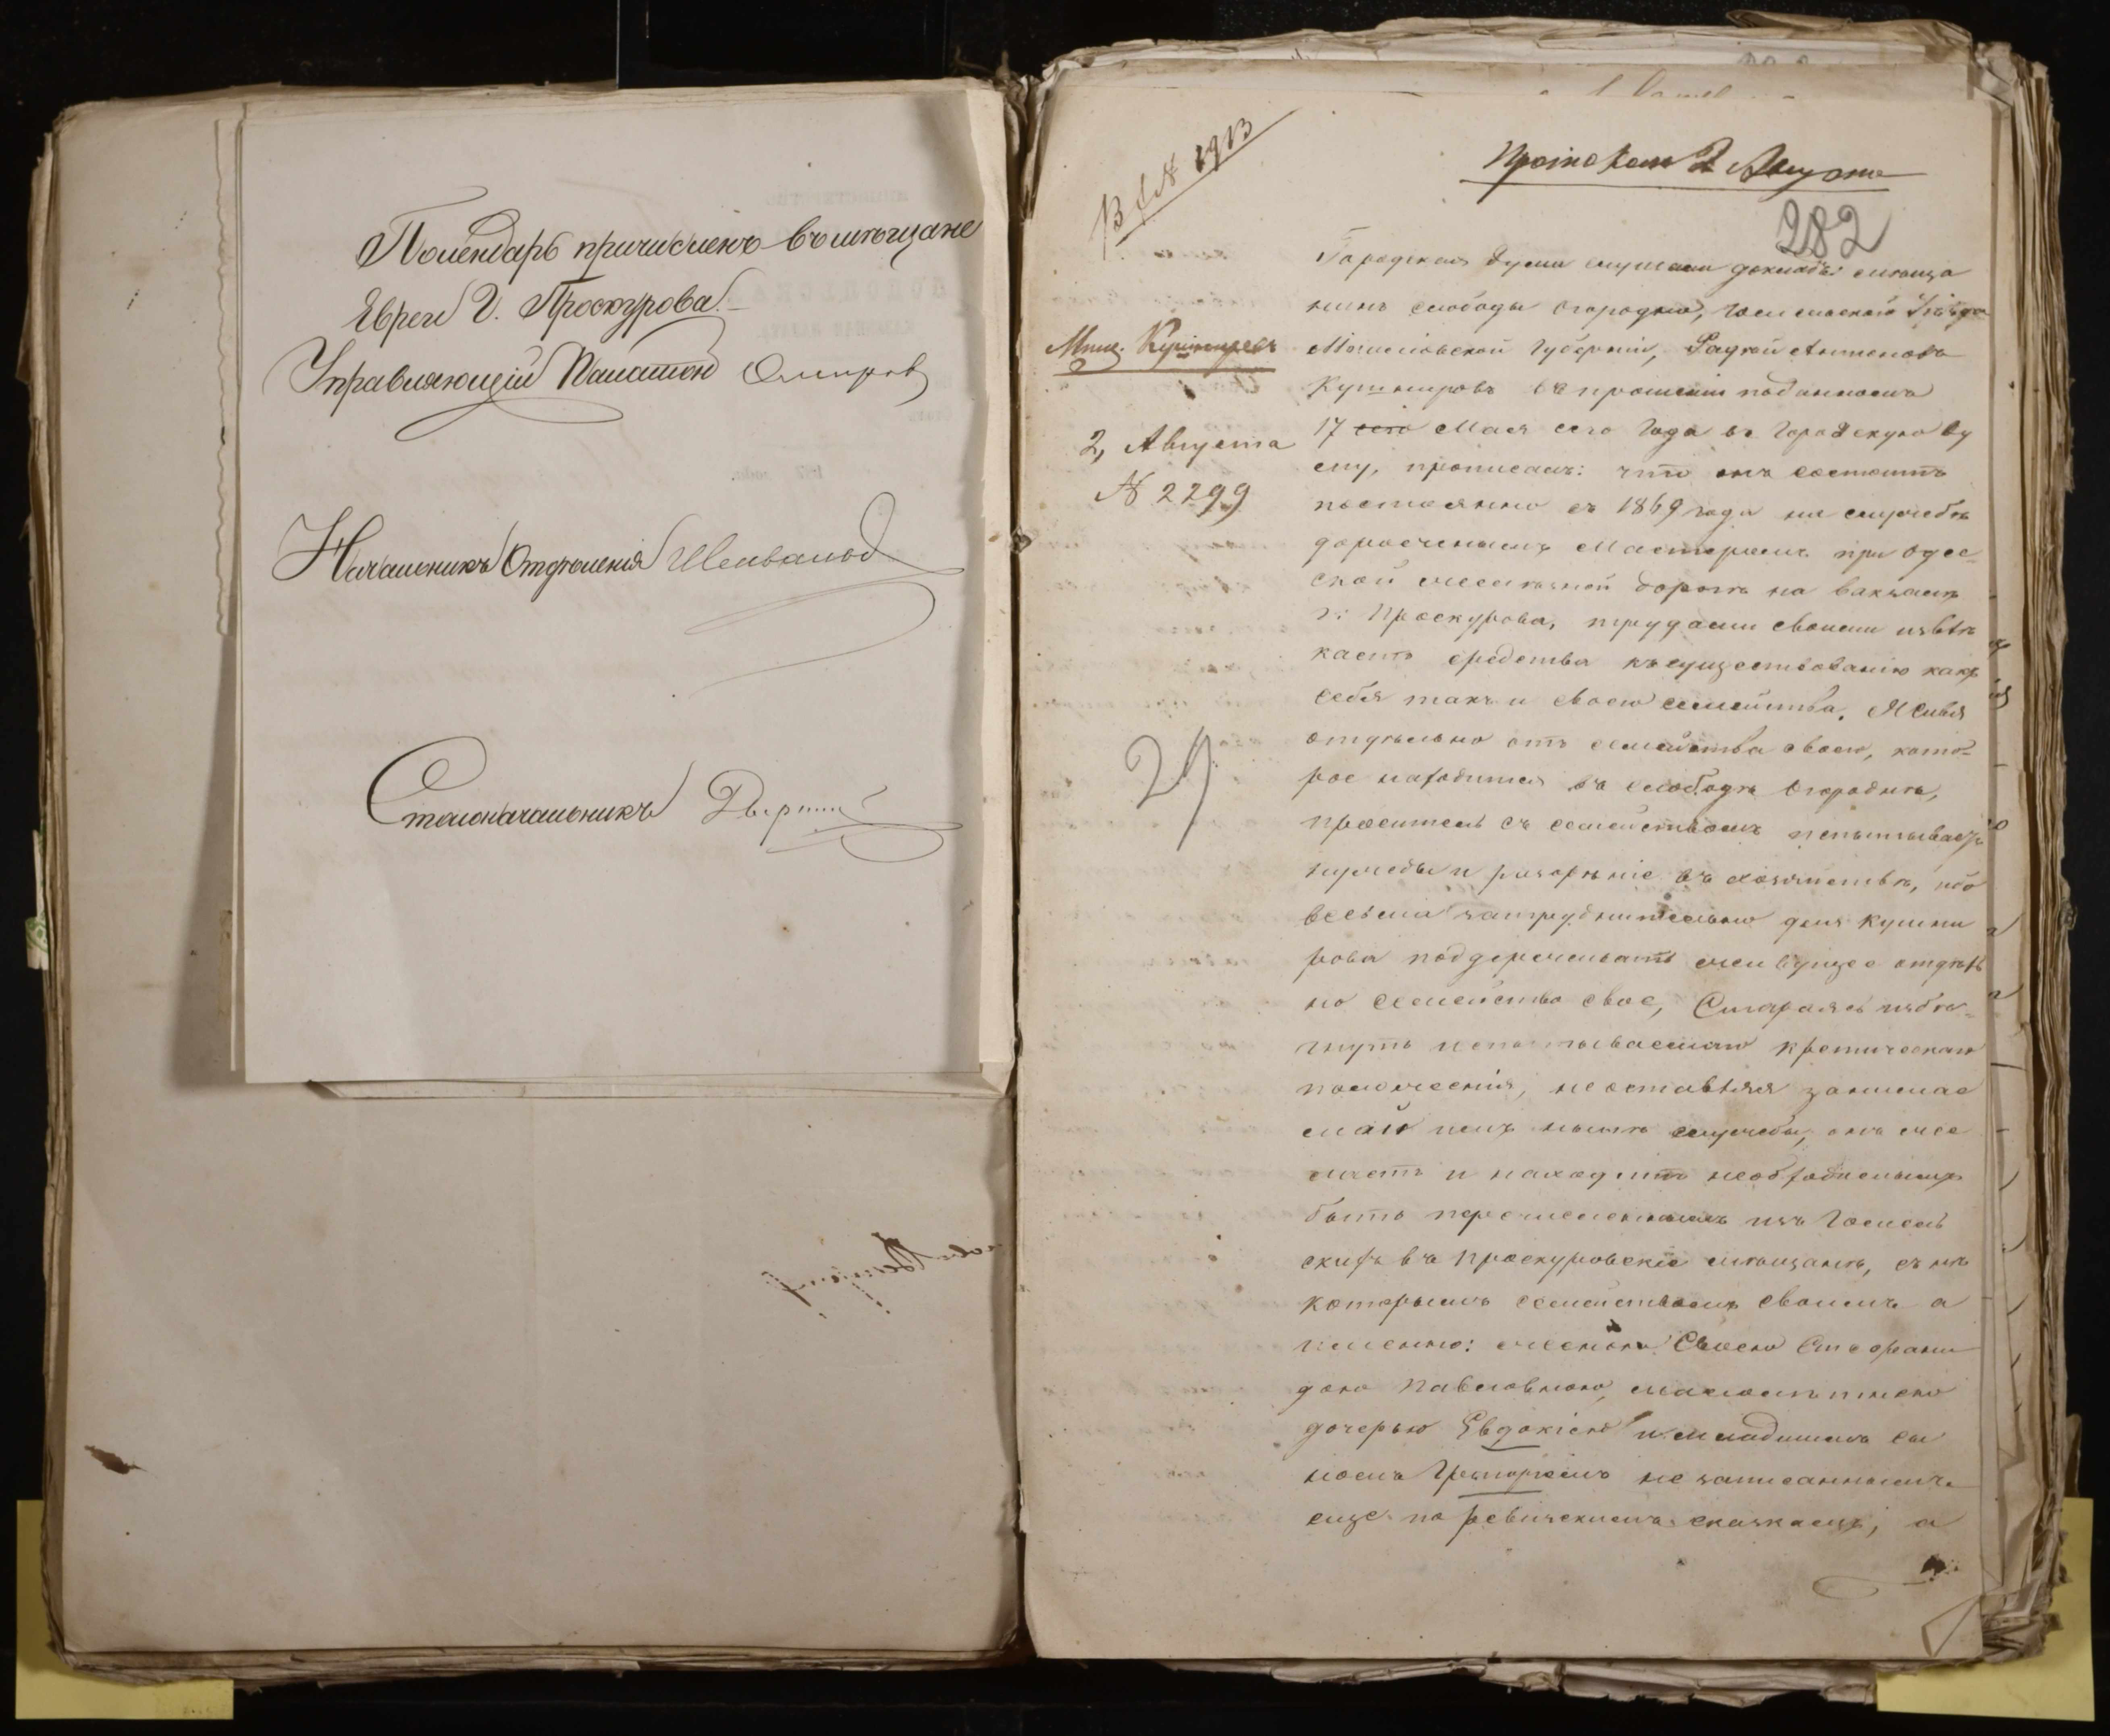 причисленъ въ мѣщане
Евреи г. Проскурова.
Управляющій Палатою
Начальникъ Отдѣленія
Столоначальникъ
Протоколъ 2 Августа
282
Городская Дума слушали докладъ: мѣща
нинъ слободы Огородни, Гомельскаго Уѣзда
Могилевской Губерніи, Антоновъ
Кушнировъ въ прошеніи поданномъ
17 сего Мая сего Года въ Городскую Ду
му, прописалъ: что онъ состоитъ
постоянно съ 1869 года на службѣ
дорожнымъ Мастеромъ при Одес-
ской желѣзной дорогѣ на вакзалѣ
г: Проскурова, трудами своими извле
каетъ средства къ существованію какъ
себя такъ и своего семейства. Живя
отдѣльно отъ семейства своего, кото-
рое находится въ слободѣ Огородня,
проситель съ семействомъ испытываетъ
нужды и разореніе въ хозяйствѣ, ибо
весьма затруднительно для Кушни
рова поддерживать живущее отдѣль
но семейство свое, Стараясь избѣ-
гнуть испытываемаго критическаго
положенія, не оставляя занимае
мой имъ нынѣ службы, онъ же
лаетъ и находитъ необходимымъ
быть перечисленнымъ изъ Гомель
скихъ въ Проскуровскіе мѣщане, съ нѣ
которымъ семействомъ своимъ а
именно: женою Своею Степани
дою Павловною, малолѣтнею
дочерью Евдокіею и младшимъ сы
номъ Григоріемъ не записаннымъ
еще по ревизскимъ сказкамъ, а
Мѣщ. Кушнировъ
2, Августа
№ 2299
29